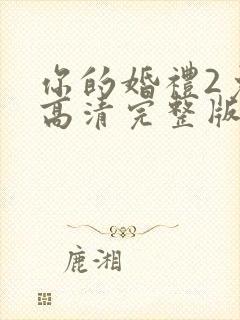 你的婚禮2
高清完整版
鹿湘